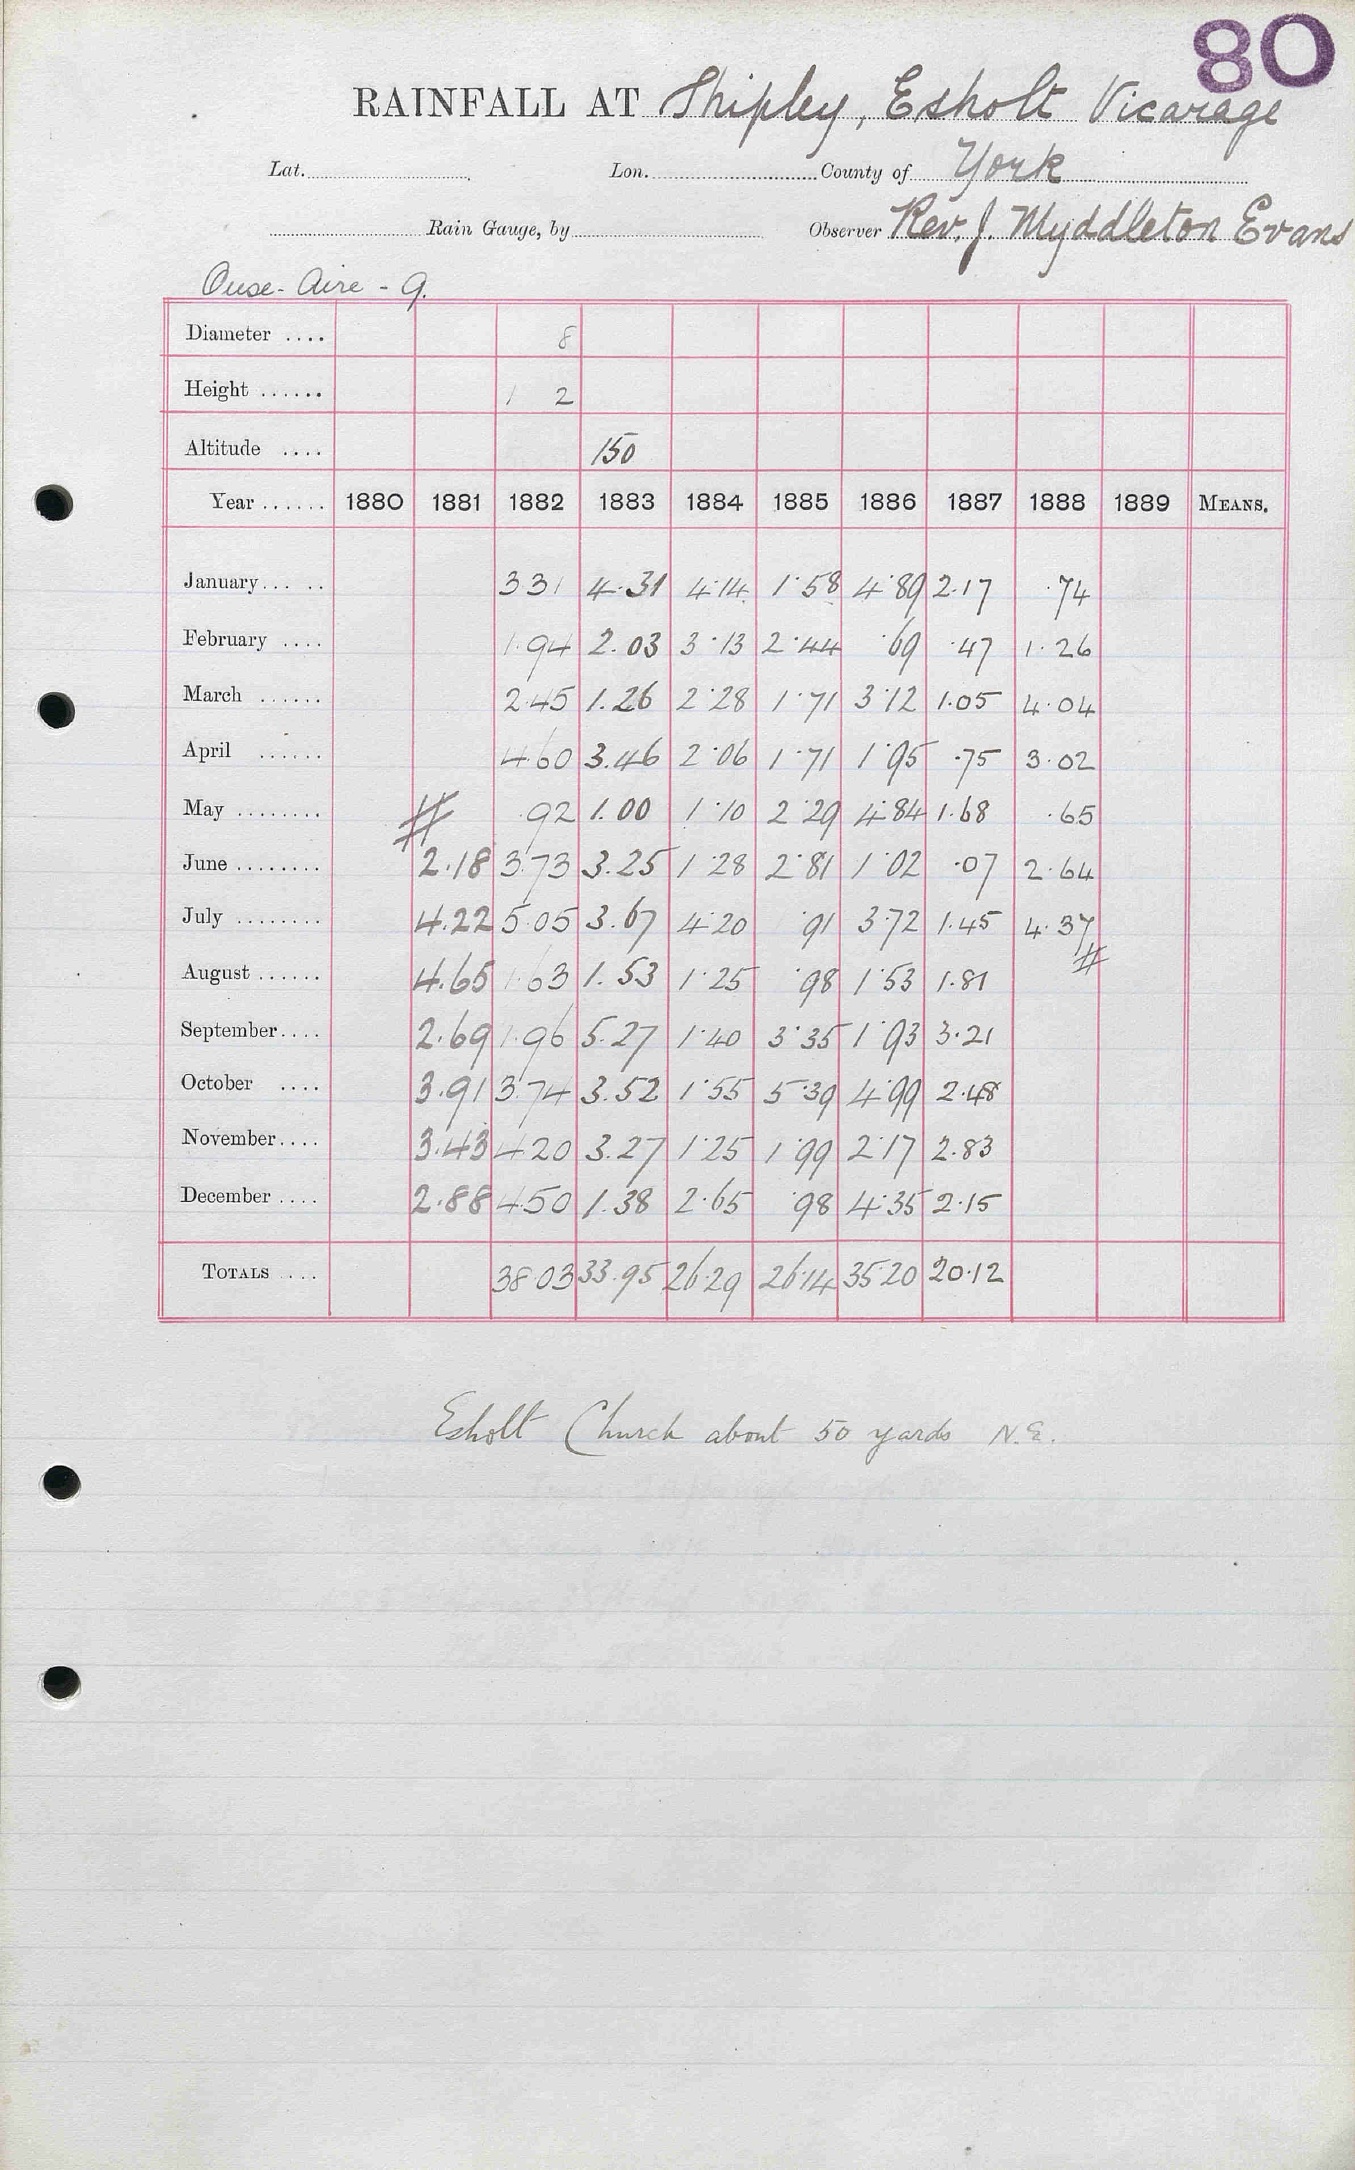 80
RAINFALL AT Shipley, Esholt Vicarage
Lat. Lon. County of York
Rain Gauge, by Observer Rev. J. Myddleton Evans
Ouse - Aire - 9.
Diameter .... 8
Height ...... 1 2
Altitude .... 150
Year ...... 1880 1881 1882 1883 1884 1885 1886 1887 1888 1889 MEANS.
January... .. 3.31 4.31 4.14 1.58 4.89 2.17 .74
February .... 1.94 2.03 3.13 2.44 .69 .47 1.26
March ...... 2.45 1.26 2.28 1.71 3.12 1.05 4.04
April ...... 4.60 3.46 2.06 1.71 1.95 .75 3.02
May ........ # .92 1.00 1.10 2.29 4.84 1.68 .65
June ........ 2.18 3.73 3.25 1.28 2.81 1.02 .07 2.64
July ........ 4.22 5.05 3.67 4.20 .91 3.72 1.45 4.37 #
August ...... 4.65 1.63 1.53 1.25 .98 1.53 1.81
September.... 2.69 1.96 5.27 1.40 3.35 1.93 3.21
October .... 3.91 3.74 3.52 1.55 5.39 4.99 2.48
November.... 3.43 4.20 3.27 1.25 1.99 2.17 2.83
December .... 2.88 4.50 1.38 2.65 .98 4.35 2.15
TOTALS .... 38.03 33.95 26.29 26.14 35.20 20.12
Esholt Church about 50 yards N.E.